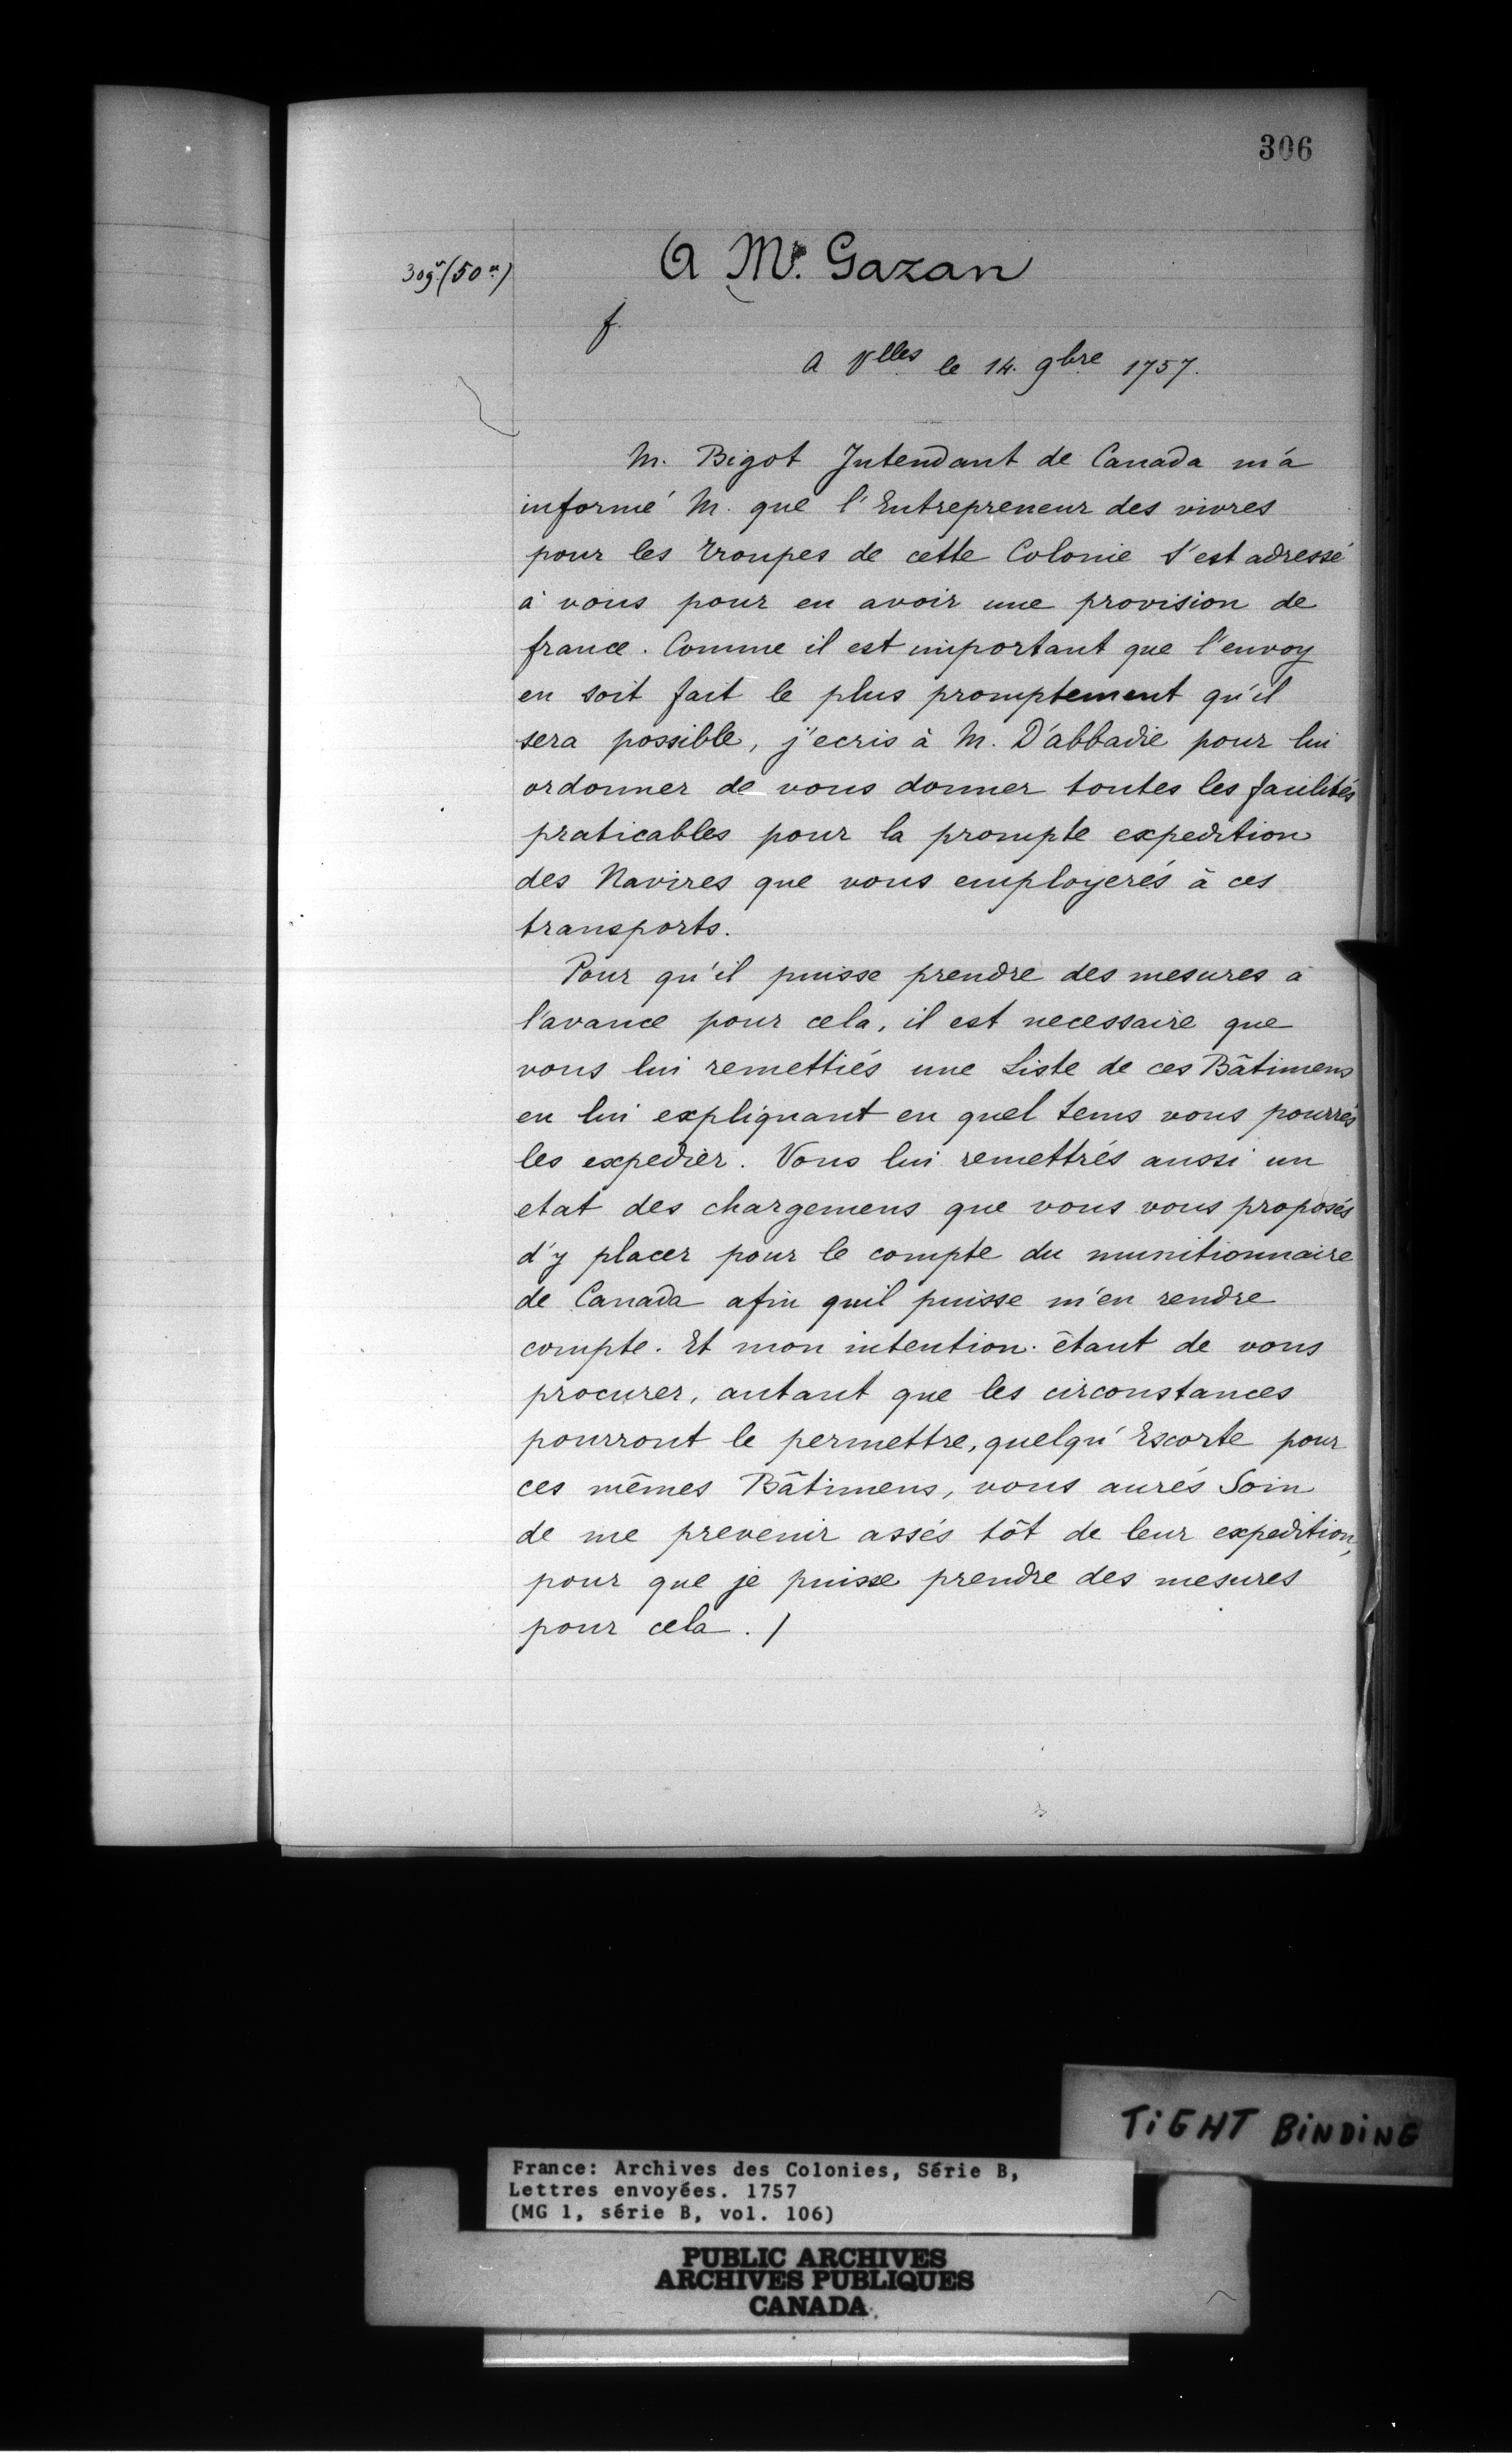 306
A Mr. Gazan
f.
A Vlles le 14. 9bre 1757.
M. Bigot Intendant de Canada m'a
informé M. que l'Entrepreneur des vivres
pour les troupes de cette Colonie s'est adressé
à vous pour en avoir une provision de
france. Comme il est important que l'envoy
en soit fait le plus promptement qu'il
sera possible, j'ecris à M. D'abbadie pour lui
ordonner de vous donner toutes les facilités
praticables pour la prompte expedition
des Navires que vous employerés à ces
transports.
Pour qu'il puisse prendre des mesures à
l'avance pour cela, il est necessaire que
vous lui remettiés une Liste de ces Bâtimens
en lui expliquant en quel tems vous pourrés
les expedier. Vous lui remettrés aussi un
etat des chargemens que vous vous proposés
d'y placer pour le compte du munitionnaire
de Canada afin quil puisse m'en rendre
compte. Et mon intention étant de vous
procurer, autant que les circonstances
pourront le permettre, quelqu'Escorte pour
ces mêmes Bâtimens, vous aurés Soin
de me prevenir assés tôt de leur expedition,
pour que je puisse prendre des mesures
pour cela. /
TiGHT BiNDiNG
France: Archives des Colonies, Série B,
Lettres envoyées. 1757
(MG 1, série B, vol. 106)
PUBLIC ARCHIVES
ARCHIVES PUBLIQUES
CANADA